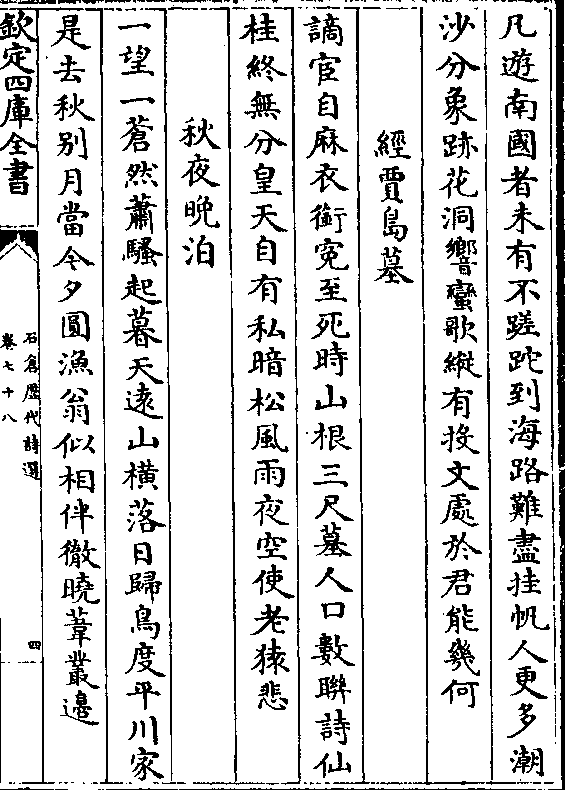 凡遊南國者未有不蹉跎到海路難盡挂帆人更多潮
沙分象跡花洞響蠻歌縱有投文處於君能幾何
經賈島墓
謫宦自麻衣銜寃至死時山根三尺墓人口數聯詩仙
桂終無分皇天自有私暗松風雨夜空使老猿悲
秋夜晩泊
一望一蒼然蕭騷起暮天逺山横落日歸鳥度平川家
是去秋别月當今夕圓漁翁似相伴徹曉葦叢邊
欽定四庫全書
石倉歴代詩選
卷七十八
四